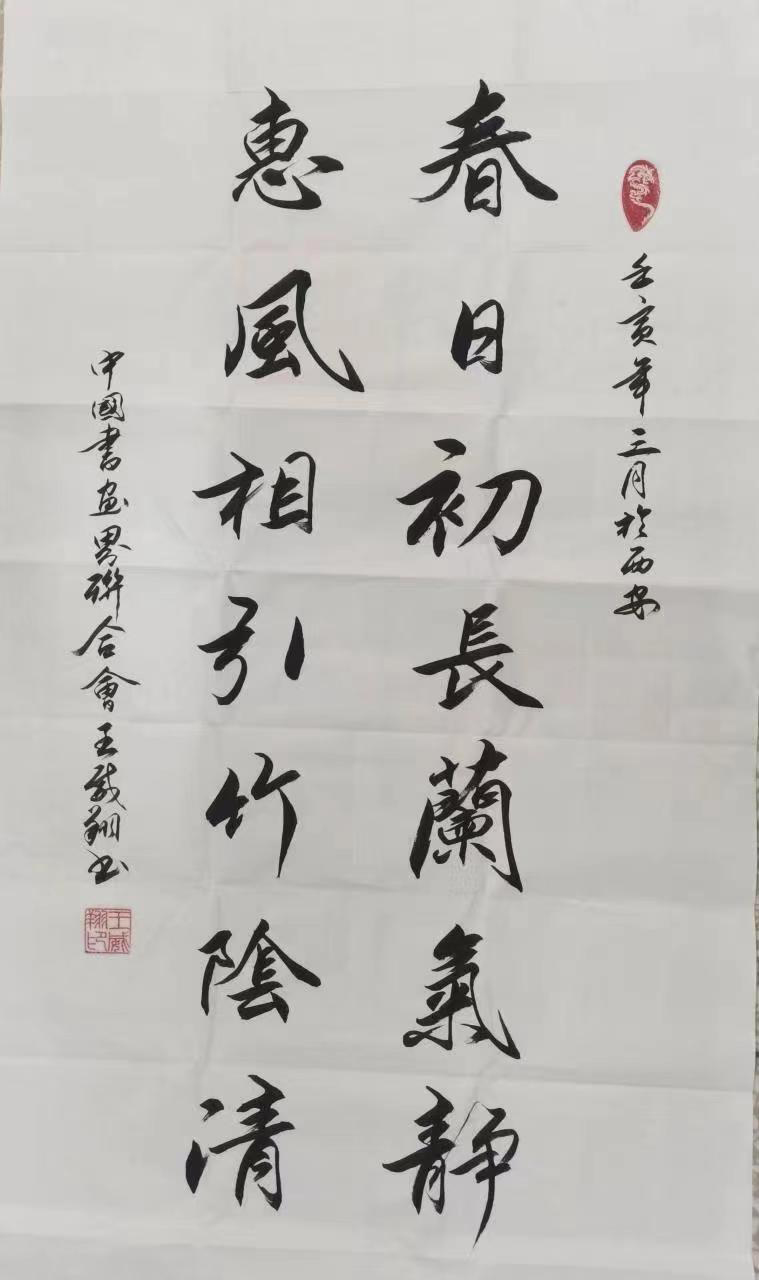 壬寅年三月於西安
春日初長蘭氣靜
惠風相引竹陰清
中國書画界聯合會王威翔书
王威翔印